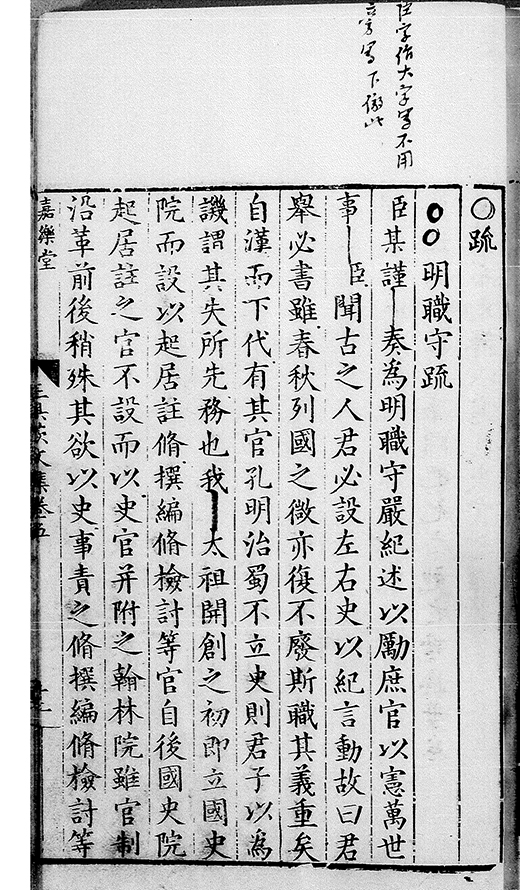 臣字作大字寫不用
○疏
明職守疏
臣某謹奏為明職守嚴紀述以勵庶官以憲萬世
事臣聞古之人君必設左右史以紀言動故曰君
舉必書雖春秋列國之微亦復不廢斯職其義重矣
自漢而下代有其官孔明治蜀不立史則君子以為
譏謂其失所先務也我太祖開創之初即立國史
院而設以起居註脩撰編脩檢討等官自後國史院
起居註之官不設而以史官并附之翰林院雖官制
沿革前後稍殊其欲以史事責之脩撰編脩檢討等
嘉樂堂
文集卷五